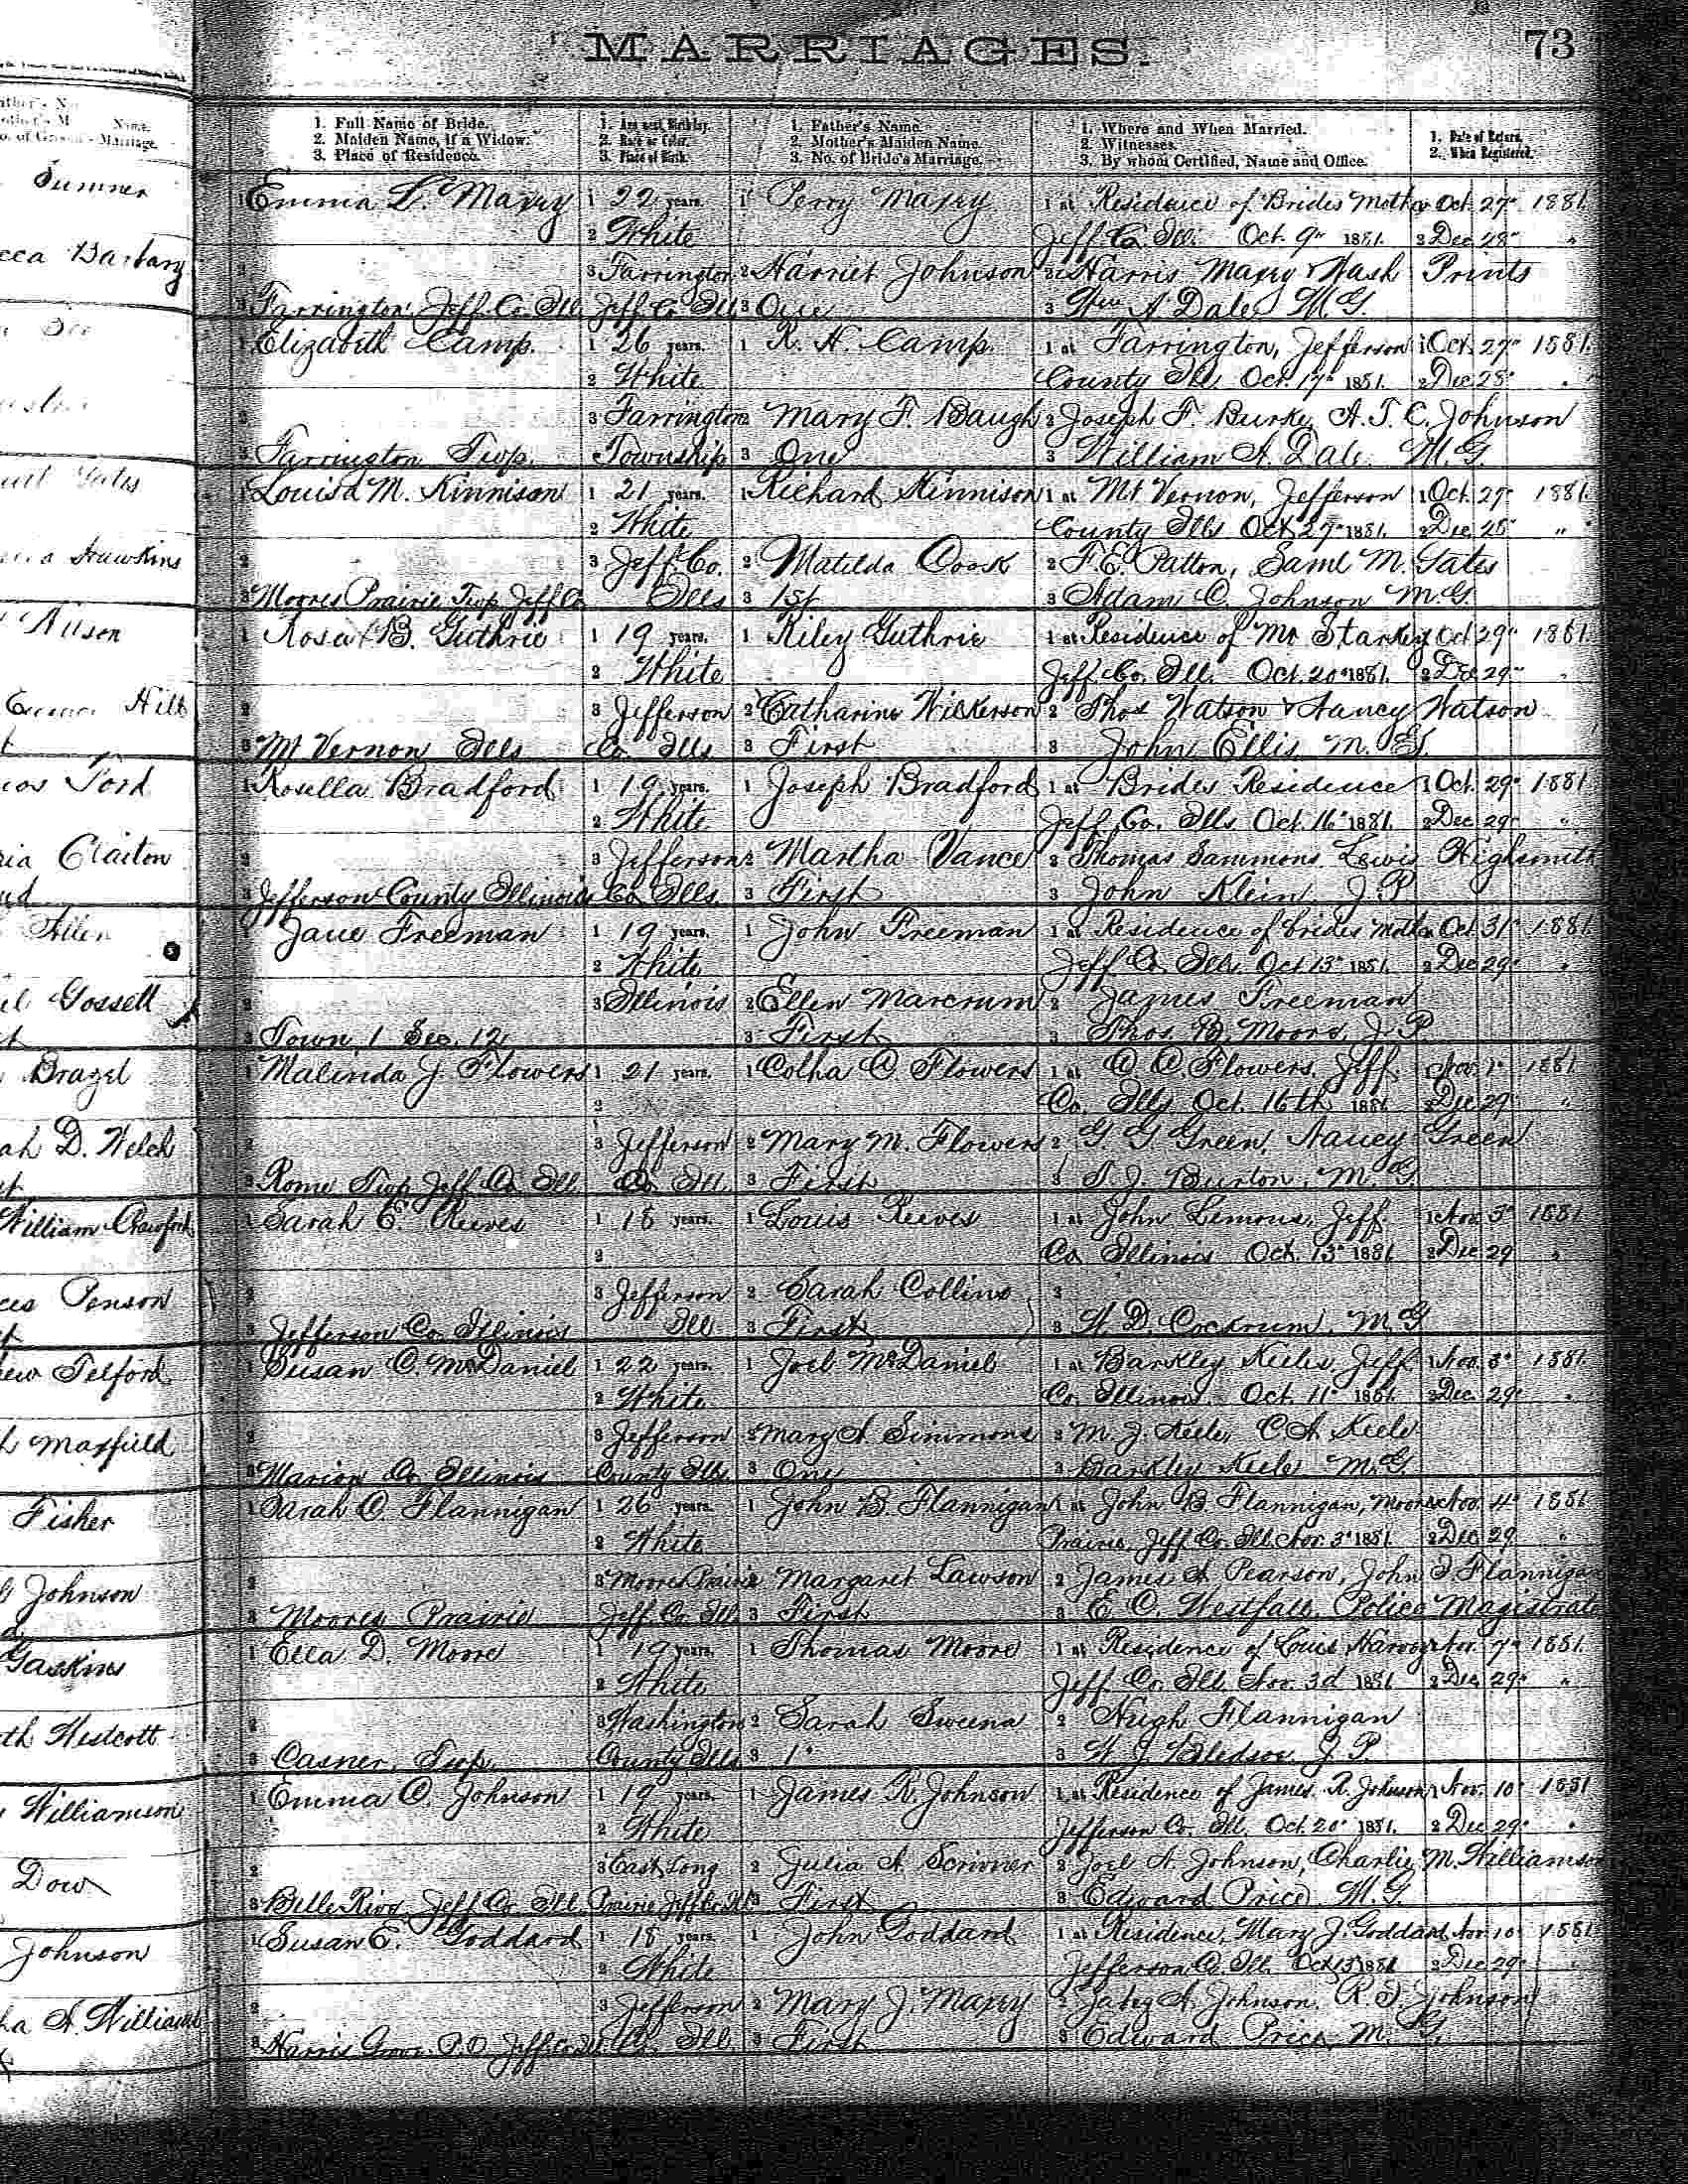 MARRIAGES.
73
1. Full Name of Bride.
2. Maiden Name, if a Widow.
3. Place of Residence.
1. Age next Birthday.
2. Race or Color.
3. Place of Birth.
1. Father's Name.
2. Mother's Maiden Name.
3. No. of Bride's Marriage.
1. Where and When Married.
2. Witnesses.
3. By whom Certified, Name and Office.
1. Date of Return.
2. When Registered.
Sumner
1 Emma L. Maxey 1 22 years. 1 Perry Maxey 1 at Residence of Brides Mother Oct. 27" 1881.
2 White Jeff Co. Ill. Oct. 9" 1881. 2 Dec 28" "
2 3 Farrington 2 Harriet Johnson 2 Harris Maxey & Wash Prints
3 Farrington, Jeff. Co. Ill. Jeff. Co. Ill. 3 One 3 Wm A Dale M.G.
1 Elizabeth Camp. 1 26 years. 1 R. H. Camp. 1 at Farrington, Jefferson 1 Oct. 27" 1881.
2 White County Ills Oct. 17" 1881. 2 Dec 28" "
2 3 Farrington 2 Mary F. Baugh 2 Joseph F. Burke, A.T.C. Johnson
3 Farrington Twp. Township 3 One 3 William A. Dale M.G.
1 Louisa M. Kinnison 1 21 years. 1 Richard Kinnison 1 at Mt Vernon, Jefferson 1 Oct. 27" 1881.
2 White County Ills Oct. 27" 1881. 2 Dec 28" "
Hawkins 2 3 Jeff. Co. 2 Matilda Cook 2 F.E. Patton, Saml M. Gates
3 Moores Prairie Twp Jeff Co Ills 3 1st 3 Adam C. Johnson M.G.
1 Rosa B. Guthrie 1 19 years. 1 Riley Guthrie 1 at Residence of Mr Starkey Oct 29" 1881.
2 White Jeff. Co. Ill. Oct. 20" 1881. 2 Dec 29" "
Hill 2 3 Jefferson 2 Catharine Wilkerson 2 Thos Watson & Nancy Watson
3 Mt Vernon Ills Co. Ills 3 First 3 John Ellis, M.G.
Ford 1 Rosella Bradford 1 19 years. 1 Joseph Bradford 1 at Brides Residence 1 Oct. 29" 1881.
2 White Jeff. Co. Ills Oct. 16" 1881. 2 Dec 29" "
Claiton 2 3 Jefferson 2 Martha Vance 2 Thomas Sammons Lewis Highsmith
3 Jefferson County Illinois Co. Ills. 3 First 3 John Klein, J.P.
Allen 1 Jane Freeman 1 19 years. 1 John Freeman 1 at Residence of brides moth Oct. 31" 1881.
2 White Jeff Co. Ills. Oct 13" 1881. 2 Dec 29" "
Gossett 2 3 Illinois 2 Ellen Marcrum 2 James Freeman
3 Town 1 Sec. 12 3 First 3 Thos. B. Moore, J.P.
Brazel 1 Malinda J. Flowers 1 21 years. 1 Colha C. Flowers 1 at C. C. Flowers, Jeff. Nov. 1" 1881.
2 Co. Ills Oct. 16th 1881. 2 Dec 29" "
D. Welch 2 3 Jefferson 2 Mary M. Flowers 2 G. G Green, Nancy Green
3 Rome Twp Jeff. Co. Ill. Co. Ill. 3 First 3 T. J. Burton, M.G.
William Crawford 1 Sarah E. Reeves 1 18 years. 1 Louis Reeves 1 at John Lemons, Jeff. 1 Nov. 3" 1881.
2 Co. Illinois Oct. 13" 1881. 2 Dec 29 "
Penson 2 3 Jefferson 2 Sarah Collins 2
3 Jefferson Co. Illinois Ill 3 First 3 W. D. Cockrum, M.G
Telford 1 Susan C. McDaniel 1 22 years. 1 Joel McDaniel 1 at Barkley Keeles, Jeff. 1 Nov. 3" 1881.
2 White Co. Illinois. Oct. 11" 1881. 2 Dec. 29" "
Maxfield 2 3 Jefferson 2 Mary A. Simmons 2 M. J. Keele, C.A. Keele
3 Marion Co. Illinois County Ills. 3 One 3 Barkley Keele M.G.
Fisher 1 Sarah C. Flannigan 1 26 years. 1 John B. Flannigan 1 at John B Flannigan, Moores Nov. 4" 1881
2 White Prairie, Jeff. Co. Ill. Nov. 3" 1881. 2 Dec 29 "
Johnson 2 3 Moores Prairie 2 Margaret Lawson 2 James A Pearson, John J. Flannigan
3 Moores Prairie Jeff. Co. Ill. 3 First 3 E. C. Westfall, Police Magistrate
Gaskins 1 Ella D. Moore 1 19 years. 1 Thomas Moore 1 at Residence of Louis Nov. 7" 1881.
2 White Jeff. Co. Ill. Nov. 3d 1881 2 Dec 29" "
Westcott 2 3 Washington 2 Sarah Sweena 2 Hugh Flannigan
3 Casner, Twp. County Ills 3 1" 3 W. J. Bledsoe J.P
Williamson 1 Emma C. Johnson 1 19 years. 1 James R. Johnson 1 at Residence of James. R. Johnson, Nov. 10" 1881
2 White Jefferson Co. Ill. Oct. 20" 1881. 2 Dec 29" "
Dow 2 3 East Long 2 Julia A. Scrivner 2 Joel A. Johnson, Charlie M. Williamson
3 Belle Rive, Jeff Co. Ill. Prairie Jeff Co Ill 3 First 3 Edward Price M.G.
Johnson 1 Susan E. Goddard 1 18 years. 1 John Goddard 1 at Residence, Mary J. Goddard Nov 10" 1881.
2 White Jefferson Co. Ill. Oct 13" 1881 2 Dec 29" "
A. Williams 2 3 Jefferson 2 Mary J. Maxey 2 Johnson, Johnson
3 Harris Grove P.O. Jeff Co Ill Co. Ill. 3 First 3 Edward Price, M.G.